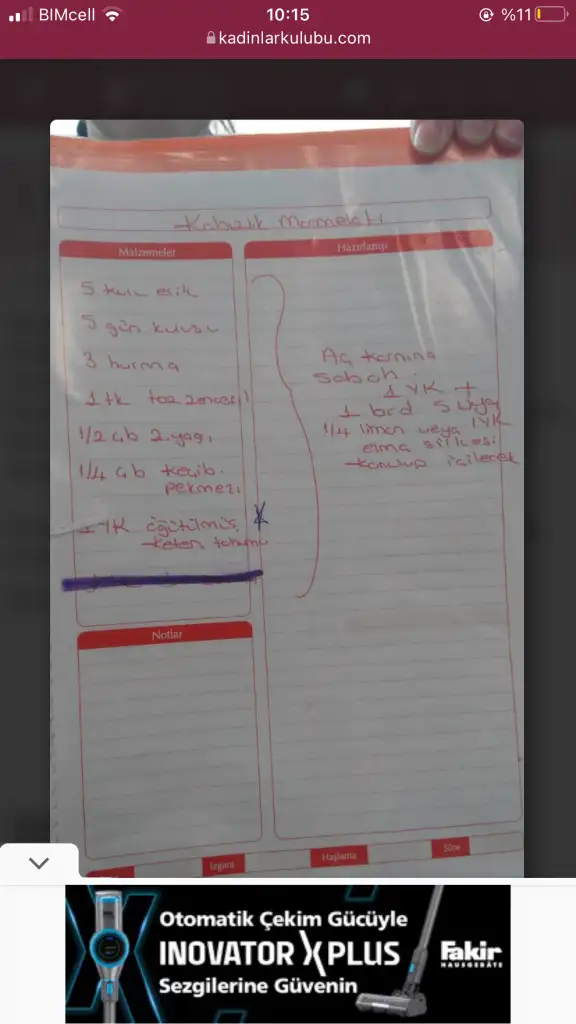 BIMcell
10:15
%11
kadinlarkulubu.com
Kabızlık Marmelatı
Malzemeler
Hazırlanışı
5 kuru erik
5 gün kurusu
3 hurma
1 tk toz zencefil
1/2 çb z.yağı
1/4 çb keçib.
pekmezi
1 YK öğütülmüş
keten tohumu
Aç karnına
sabah
1 YK +
1 brd suya
1/4 limon veya 1YK
elma sirkesi
konulup içilecek
Notlar
Izgara
Haşlama
Süre
Otomatik Çekim Gücüyle
INOVATOR X PLUS
Sezgilerine Güvenin
Fakir
HAUSGERÄTE